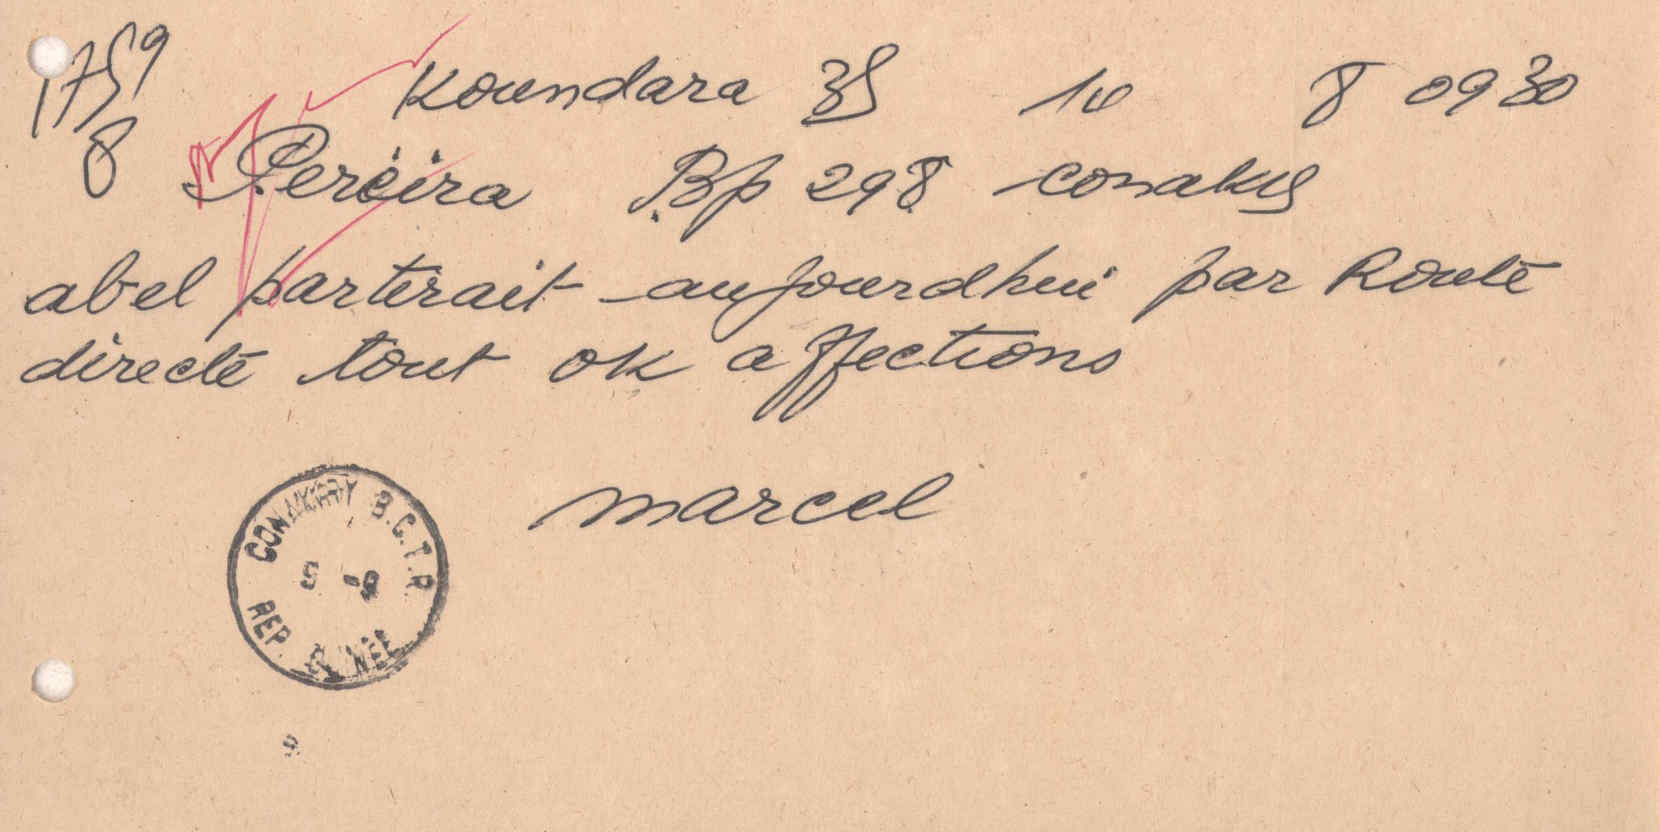 1759
8
Koundara 35 10 8 0930
Pereira Bp 298 conakry
abel partirait aujourdhui par Route
directe tout ok affections
marcel
CONAKRY B.C.T.R.
5 -9
REP. GUINEE